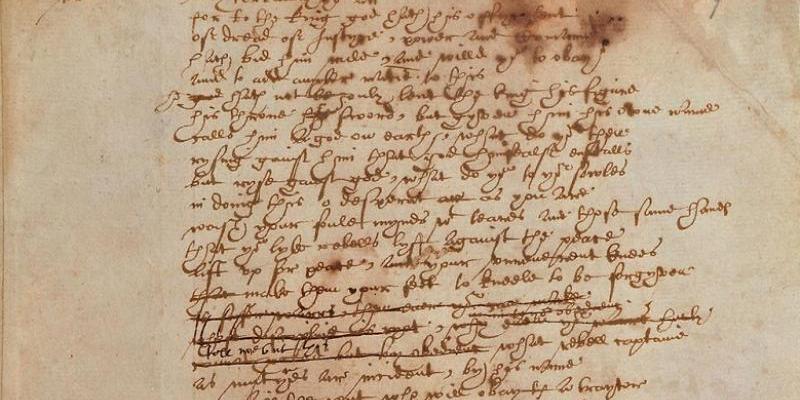 for to the king god hath his offyc lent
of dread of Iustyce, power and Comaund
hath bid him rule, and willd yo to obay
and to add ampler matie to this
he god hath not le only lent the king his figure
his throne his sword, but gyven him his owne name
calls him a god on earth, what do yo then
rysing gainst him that god himsealf enstalls
but ryse gainst god, what do yo to yor sowles
in doing this o desperat ar as you are
wash your foule mynds wt teares and those same handes
that yo lyke rebells lyft against the peace
lift vp for peace, and your vnreuerent knees
that make them your feet to kneele to be forgyven
is safer warrs, then euer yo can make
whose discipline is ryot, why euen yor warrs hurly
tell me but this
but by obedienc what rebell captaine
as mutynes ar incident, by his name
can still the rout who will obay th a traytor